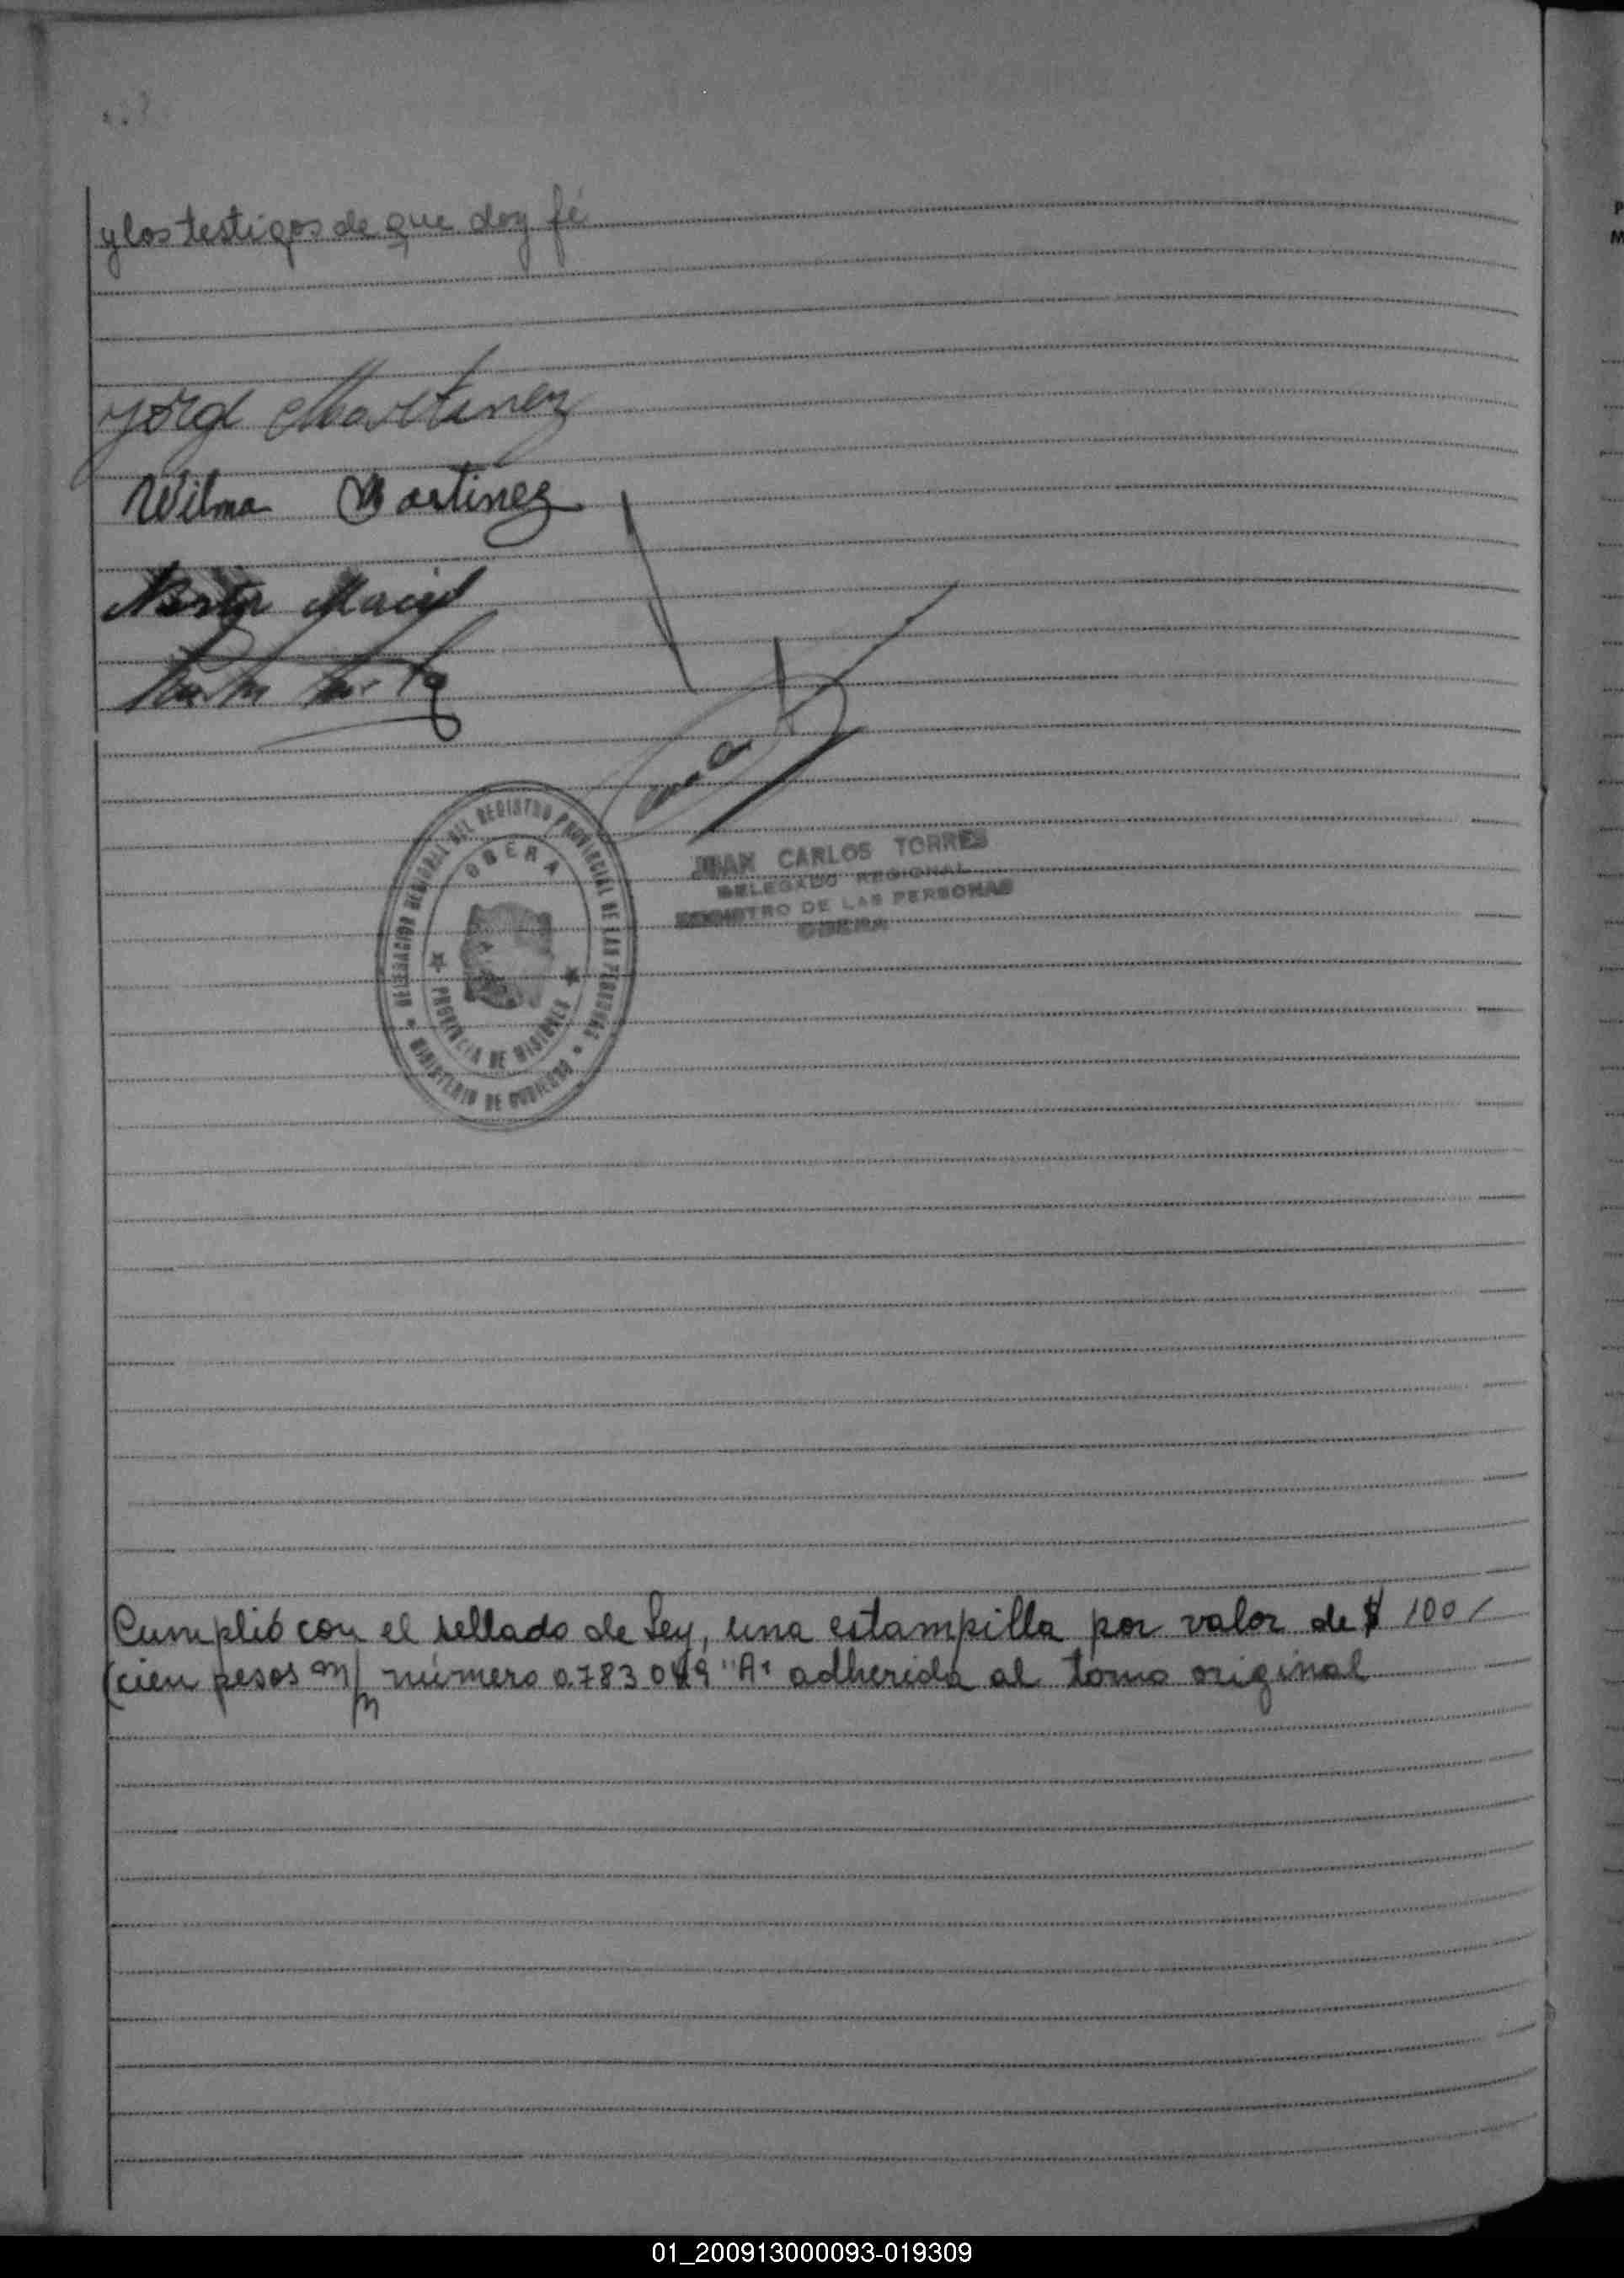 y los testigos de que doy fé
Jorge Martinez
Wilma Martinez
Maciel
DELEGACION REGIONAL DEL REGISTRO PROVINCIAL DE LAS PERSONAS
OBERA
PROVINCIA DE MISIONES
MINISTERIO DE GOBIERNO
JUAN CARLOS TORRES
DELEGADO REGIONAL
REGISTRO DE LAS PERSONAS
OBERA
Cumplió con el sellado de Ley, una estampilla por valor de $ 100/
(cien pesos m/n número "A" adherida al tomo original
01_200913000093-019309